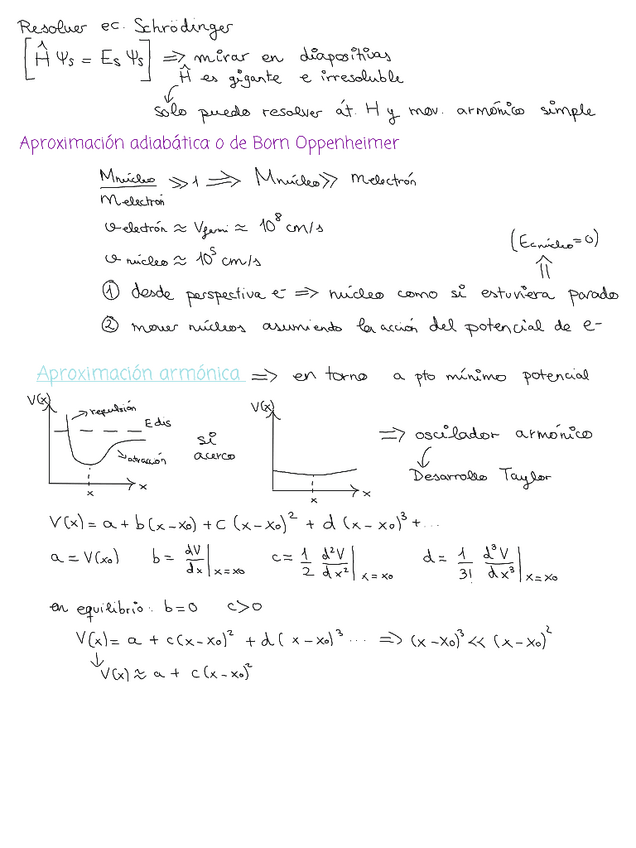 Resolver ec. Schrödinger
[Ĥ Ψs = Es Ψs] ⇒ mirar en diapositivas
Ĥ es gigante e irresoluble
solo puedo resolver át. H y mov. armónico simple
Aproximación adiabática o de Born Oppenheimer
Mnúcleo/melectrón ≫ 1 ⇒ Mnúcleo ≫ melectrón
v electrón ≈ Vfermi ≈ 10⁸ cm/s
v núcleo ≈ 10⁵ cm/s
(Ec núcleo = 0)
① desde perspectiva e⁻ ⇒ núcleo como si estuviera parado
② mover núcleos asumiendo la acción del potencial de e⁻
Aproximación armónica ⇒ en torno a pto mínimo potencial
V(x) repulsión E dis atracción x x
si acerco
V(x) x x
⇒ oscilador armónico
Desarrollo Taylor
V(x) = a + b(x-x₀) + c(x-x₀)² + d(x-x₀)³ + ...
a = V(x₀) b = dV/dx|x=x₀ c = 1/2 d²V/dx²|x=x₀ d = 1/3! d³V/dx³|x=x₀
en equilibrio: b=0 c>0
V(x) = a + c(x-x₀)² + d(x-x₀)³ ... ⇒ (x-x₀)³ ≪ (x-x₀)²
↳ V(x) ≈ a + c(x-x₀)²